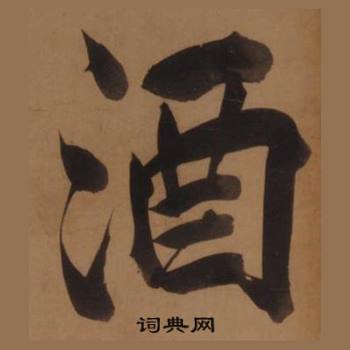 酒
词典网